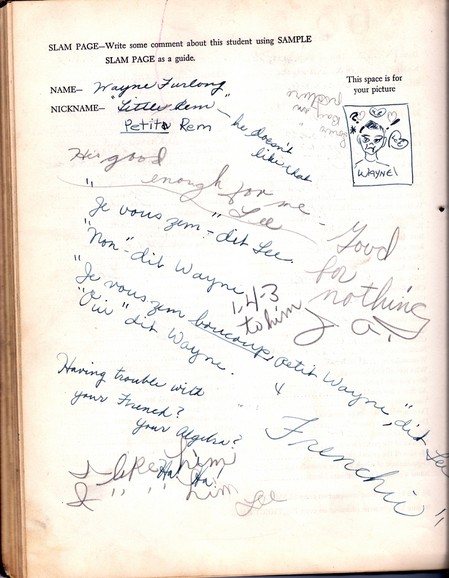 SLAM PAGE—Write some comment about this student using SAMPLE
SLAM PAGE as a guide.
NAME— Wayne Furlong
This space is for
your picture
NICKNAME— "Little Rem" — he doesn't
like that
Petite Rem
WAYNE!
He's good
enough for me —
Lee
"Je vous zem" - dit Lee.
"Non" - dit Wayne
"Je vous zem boucoup, petit Wayne," dit Lee
"Oui" dit Wayne.
1, 4-3
to him
Good
for
nothing
Having trouble with
your French?
your Algebra?
Ha! Ha!
"Frenchie"
I like him
I " " him
Lee